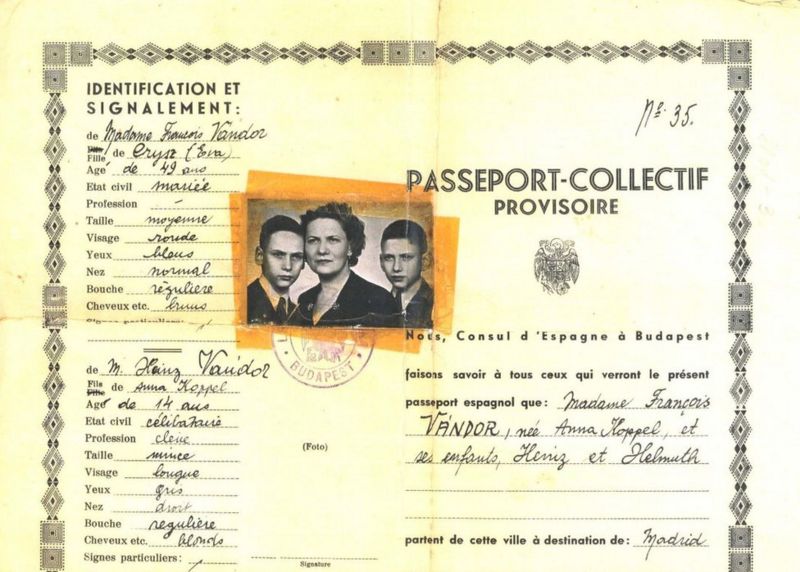 IDENTIFICATION ET
SIGNALEMENT:
de Madame François Vándor
Fille de (Eva)
Age de 49 ans
Etat civil mariée
Profession -
Taille moyenne
Visage ronde
Yeux bleus
Nez normal
Bouche régulière
Cheveux etc. bruns
de M. Heinz Vándor
Fils de Anna Koppel
Age de 14 ans
Etat civil célibataire
Profession eleve
Taille mince
Visage longue
Yeux gris
Nez droit
Bouche reguliere
Cheveux etc. blonds
Signes particuliers:
BUDAPEST
(Foto)
Signature
No. 35.
PASSEPORT-COLLECTIF
PROVISOIRE
Nous, Consul d'Espagne à Budapest
faisons savoir à tous ceux qui verront le présent
passeport espagnol que: Madame François
VÁNDOR, née Anna Koppel, et
ses enfants, Heinz et Helmuth
partent de cette ville à destination de: Madrid